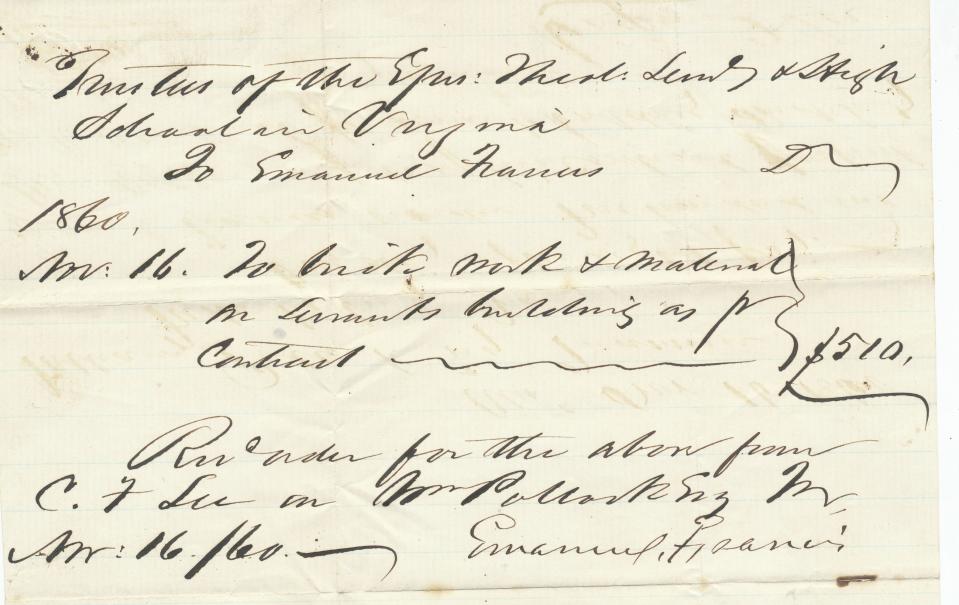 Trustees of the Epis: Theol: Semy & High
School in Virginia
To Emanuel Francis Dr
1860.
Nov: 16. To brick work & material
on servants building as pr
Contract $510.
Recd order for the above from
C. F Lee on Wm Pollock Esq Tr,
Nov: 16 /60. Emanuel Francis